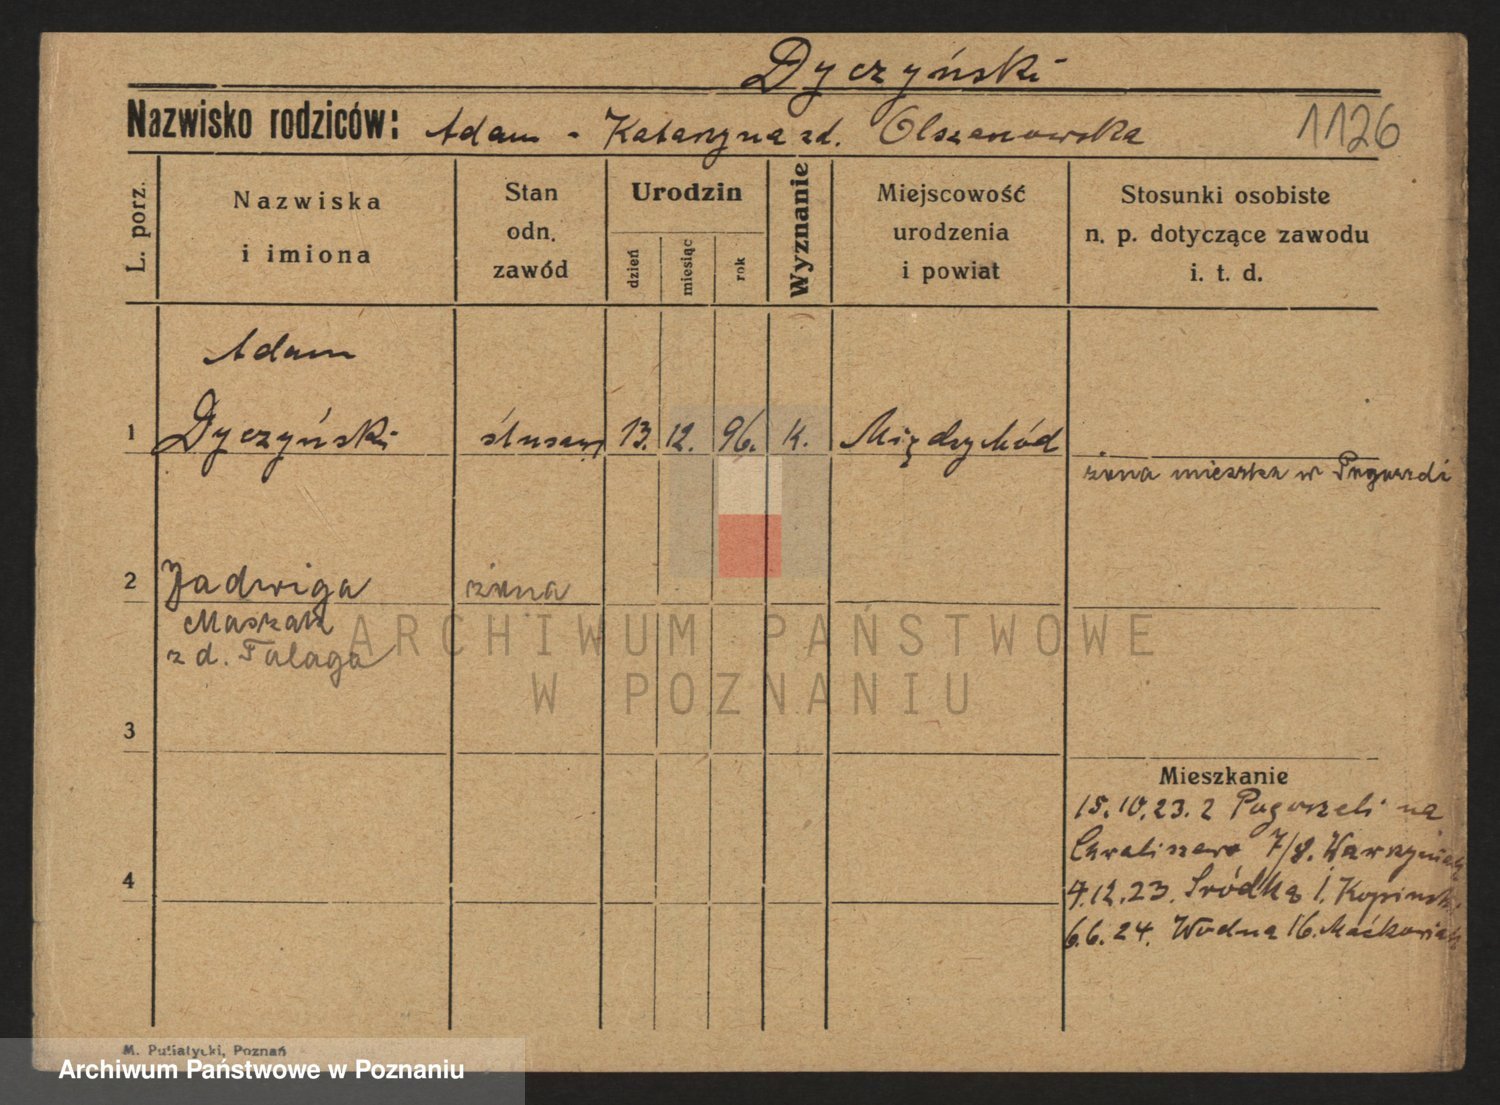 Dyczyński
Nazwisko rodziców: Adam - Katarzyna zd. Olszanowska
1126
L. porz.
Nazwiska
i imiona
Stan
odn.
zawód
Urodzin
dzień
miesiąc
rok
Wyznanie
Miejscowość
urodzenia
i powiat
Stosunki osobiste
n. p. dotyczące zawodu
i. t. d.
Adam
1 Dyczyński ślusarz 13. 12. 96. k. Międzychód
żona mieszka w
2 Jadwiga żona
Maszak
z d. Talaga
ARCHIWUM PAŃSTWOWE
W POZNANIU
3
Mieszkanie
15.10.23. z Pogorzeli na
7/8. Wawrzyniak
4
4.12.23. Śródka 1. Kopinski
6.6.24. Wodna 16. Maćkowiak
M. Putiatycki, Poznań
Archiwum Państwowe w Poznaniu